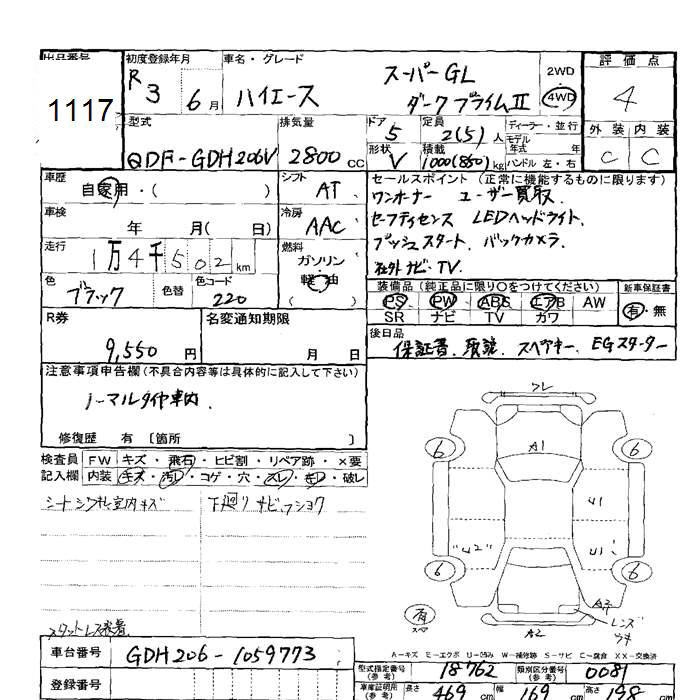 出品番号
1117
初度登録年月
R 3 6 月
車名・グレード
ハイエース
スーパーGL
ダークプライムⅡ
2WD
4WD
評価点
4
外装 内装
C C
型式
QDF-GDH206V
排気量
2800 cc
ドア 5
形状 V
定員
2(5) 人
積載
1000(850) kg
ディーラー・並行
モデル
年式 年
ハンドル 左・右
車歴
自家用・( )
シフト
AT
車検
年 月( 日)
冷房
AAC
走行
1万4千502 km
燃料
ガソリン
軽油
色
ブラック
色替
色コード
220
セールスポイント(正常に機能するものに限ります)
ワンオーナー ユーザー買取
セーフティセンス LEDヘッドライト.
プッシュスタート. バックカメラ.
社外ナビ・TV.
装備品(純正品に限り○をつけてください)
PS PW ABS エアB AW
SR ナビ TV カワ
新車保証書
有・無
R券
9,550 円
名変通知期限
月 日
後日品
保証書. 取説. スペアキー. EGスターター
注意事項申告欄(不具合内容等は具体的に記入して下さい)
ノーマルタイヤ車内.
修復歴 有 〔箇所 〕
検査員 FW キズ・飛石・ヒビ割・リペア跡・×要
記入欄 内装 キズ・汚レ・コゲ・穴・スレ・キレ・破レ
シートシワ 室内キズ
下廻りサビフショク
スタットレス装着
フレ
A1
6 6
U1
"U2" U1
6 6
有
スペア
A3
レンズ
ワキ
A2
A-キズ E-エクボ U-凹み W-補修跡 S-サビ C-腐食 XX-交換済
車台番号
GDH206-1059773
登録番号
型式指定番号
(参考)
18762
類別区分番号
(参考)
0081
車庫証明用
(参考)
長さ 469 cm 幅 169 cm 高さ 198 cm